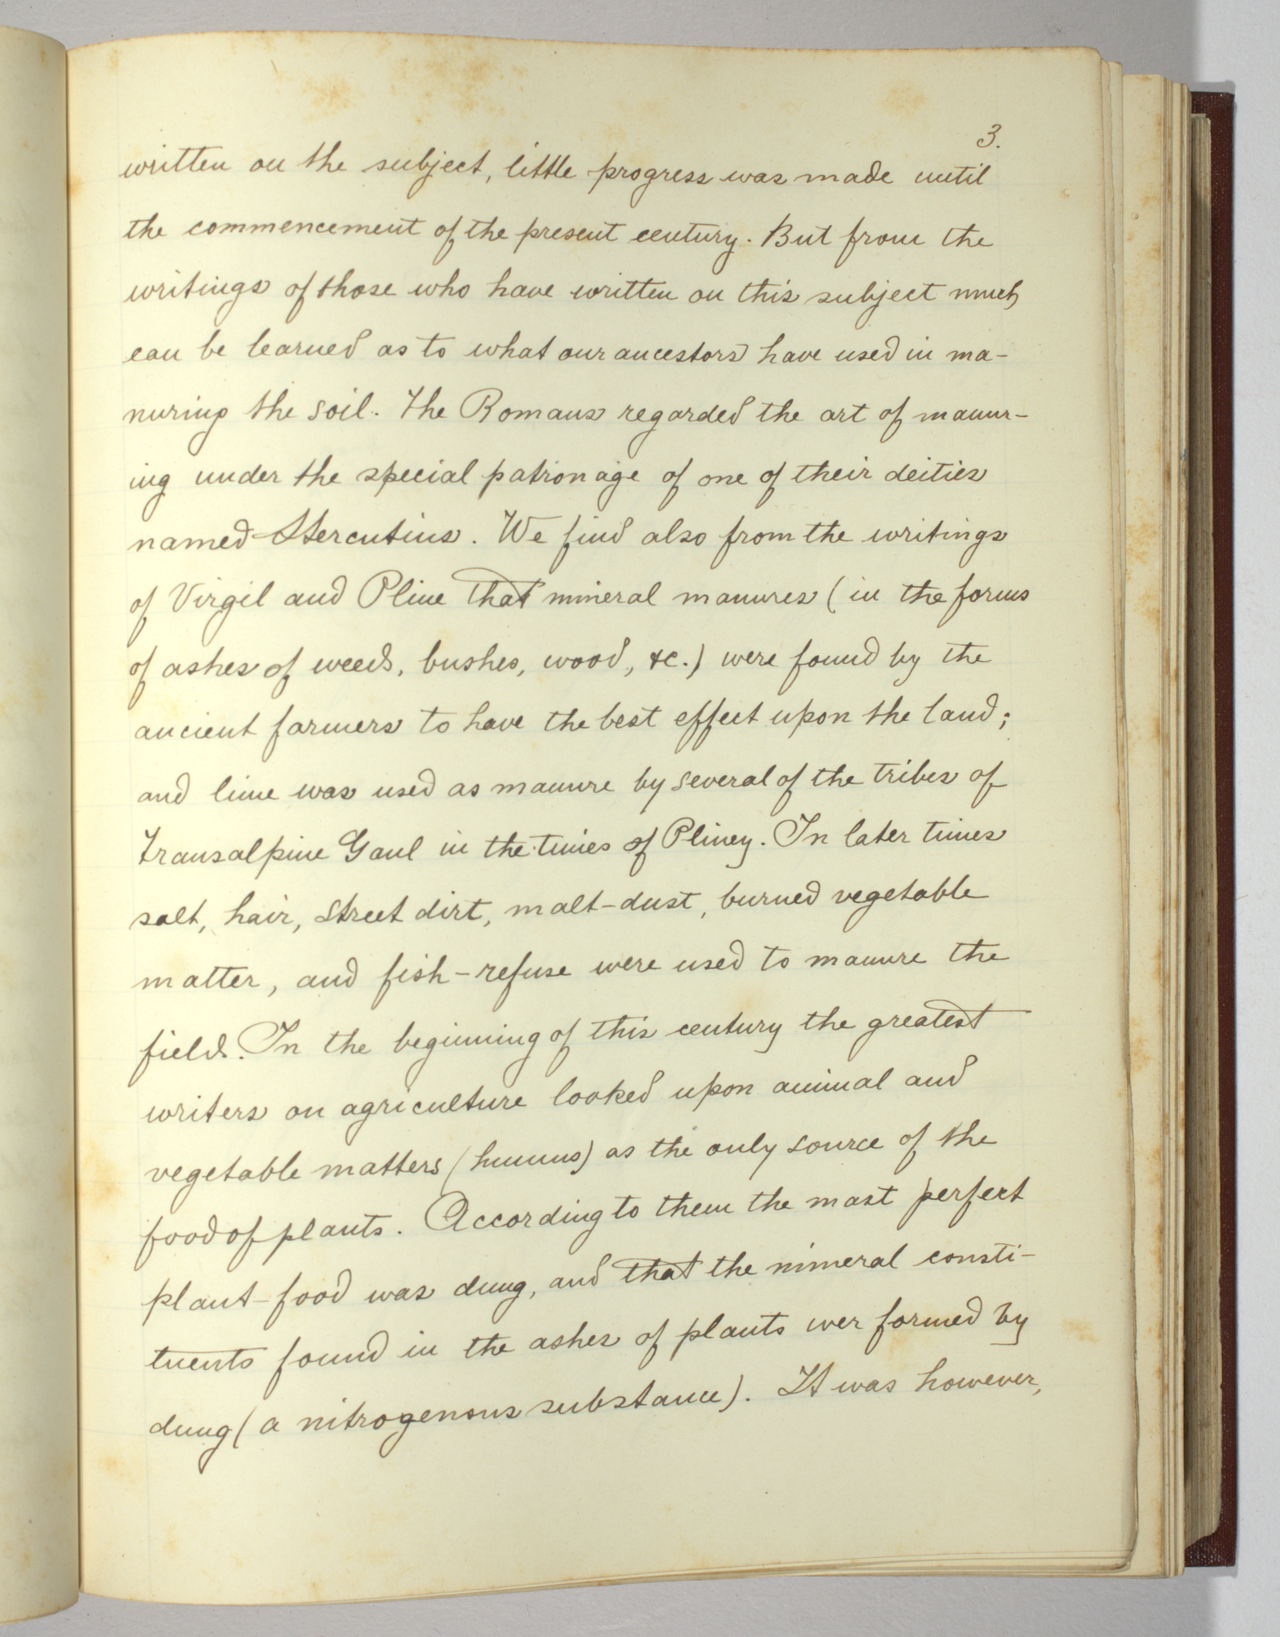 3.
written on the subject, little progress was made until
the commencement of the present century. But from the
writings of those who have written on this subject much
can be learned as to what our ancestors have used in ma-
nuring the soil. The Romans regarded the art of manur-
ing under the special patronage of one of their deities
named Stercutius. We find also from the writings
of Virgil and Pline that mineral manures (in the forms
of ashes of weeds, bushes, wood, &c.) were found by the
ancient farmers to have the best effect upon the land;
and lime was used as manure by several of the tribes of
Transalpine Gaul in the times of Pliney. In later times
salt, hair, street dirt, malt-dust, burned vegetable
matter, and fish-refuse were used to manure the
fields. In the beginning of this century the greatest
writers on agriculture looked upon animal and
vegetable matters (humus) as the only source of the
food of plants. According to them the most perfect
plant-food was dung, and that the mineral consti-
tuents found in the ashes of plants wer formed by
dung (a nitrogenous substance). It was however,